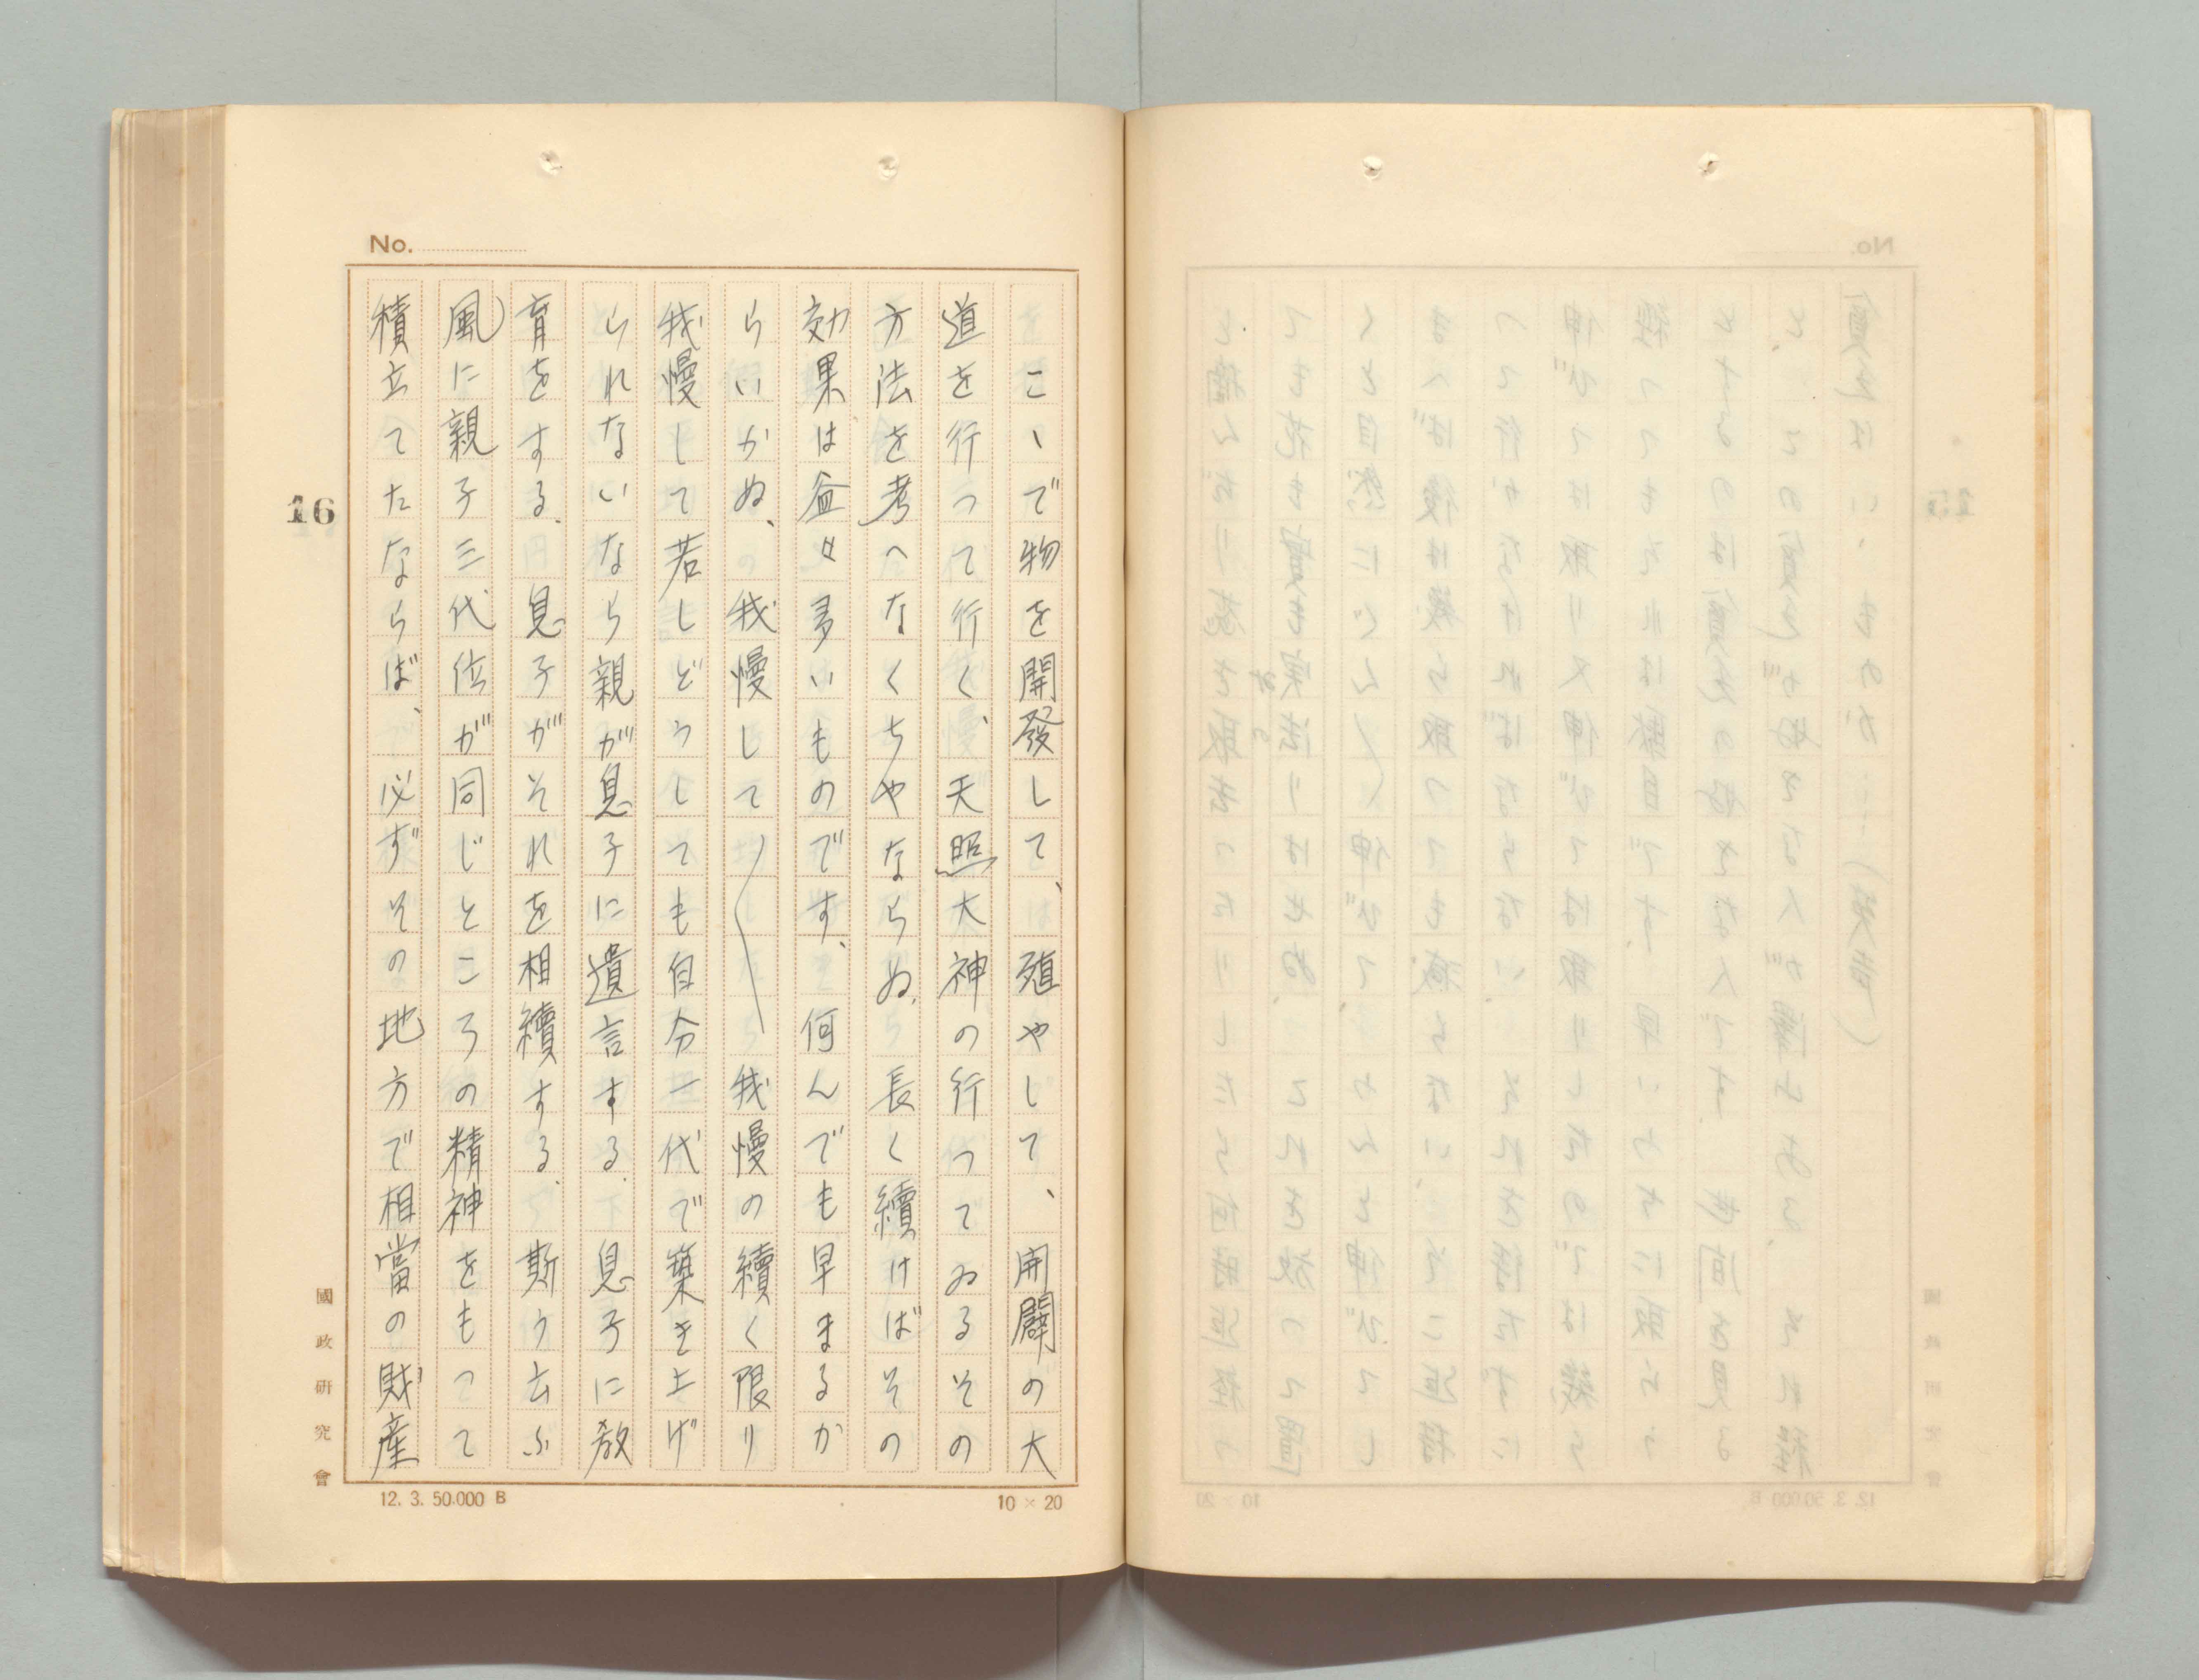 No.
こゝで物を開發して、殖やして、開闢の大
道を行つて行く、天照大神の行つてゐるその
方法を考へなくちやならぬ、長く續けばその
効果は益々多いものです、何んでも早まるか
らいかぬ、我慢して〱我慢の續く限り
我慢して若しどうしても自分一代で築き上げ
られないなら親が息子に遺言する、息子に教
育をする、息子がそれを相續する、斯う云ふ
風に親子三代位が同じところの精神をもつて
積立てたならば、必ずその地方で相當の財産
16
國政研究會
12. 3. 50.000 B
10 × 20